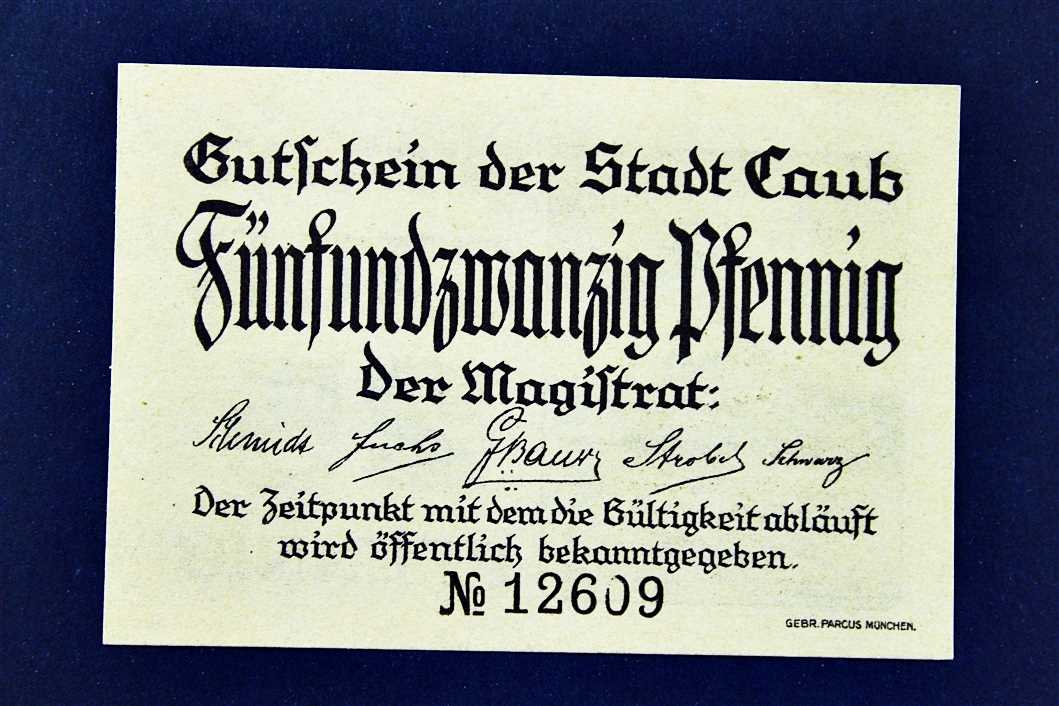 Gutschein der Stadt Caub
Fünfundzwanzig Pfennig
Der Magistrat:
Schmidt Fuchs Strobel Schwarz
Der Zeitpunkt mit dem die Gültigkeit abläuft
wird öffentlich bekanntgegeben.
№ 12609
GEBR. PARCUS MÜNCHEN.